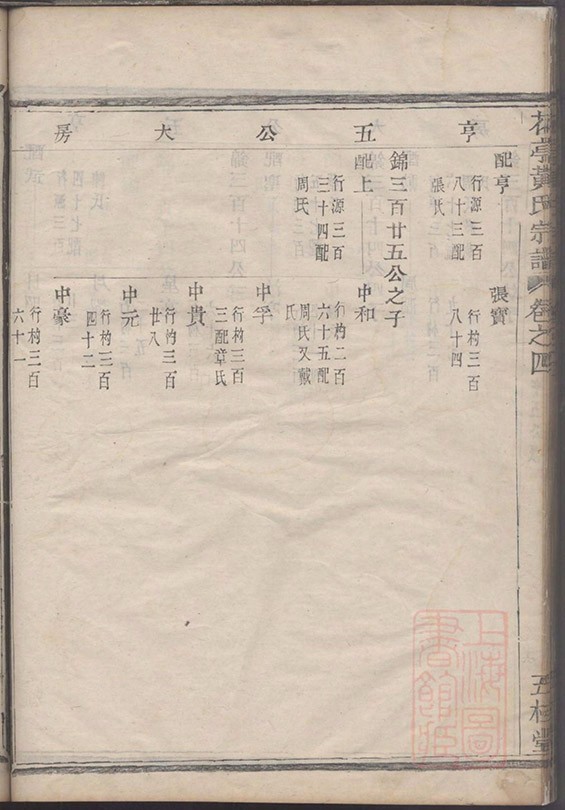 花亭黃氏宗譜 卷之四
五桂堂
亨五公大房
配亨
行源三百
八十三配
張氏
張寶
行杓三百
八十四
錦三百廿五公之子
配上
行源三百
三十四配
周氏
中和
行杓二百
六十五配
周氏又戴
氏
中孚
行杓三百
三配章氏
中貴
行杓三百
廿八
中元
行杓三百
四十二
中豪
行杓三百
六十一
上海圖
書館藏